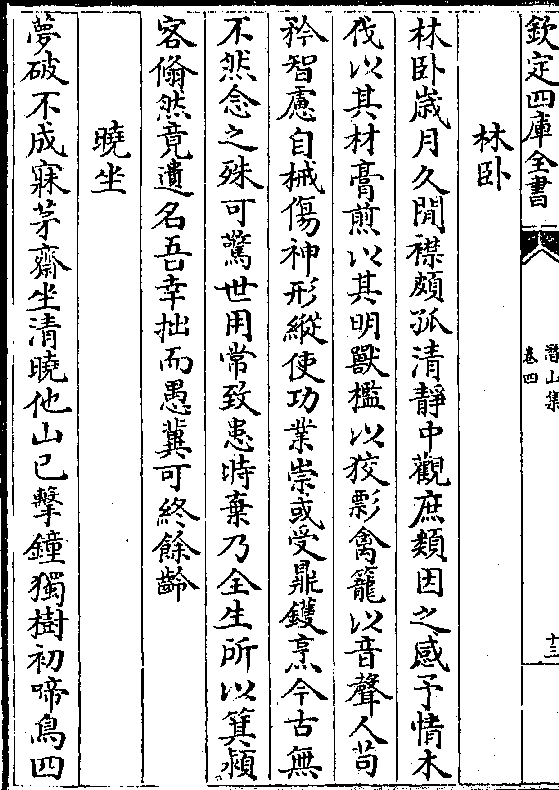 欽定四庫全書
潛山集
卷四
十三
林卧
林卧歲月久閒襟頗孤清靜中觀庶類因之感予情木
伐以其材膏煎以其明獸檻以狡影禽籠以音聲人苟
矜智慮自械傷神形縱使功業崇或受鼎鑊烹今古無
不然念之殊可驚世用常致患時棄乃全生所以箕潁
客翛然竟遺名吾幸拙而愚冀可終餘齡
曉坐
夢破不成寐茅齋坐清曉他山已擊鐘獨樹初啼鳥四